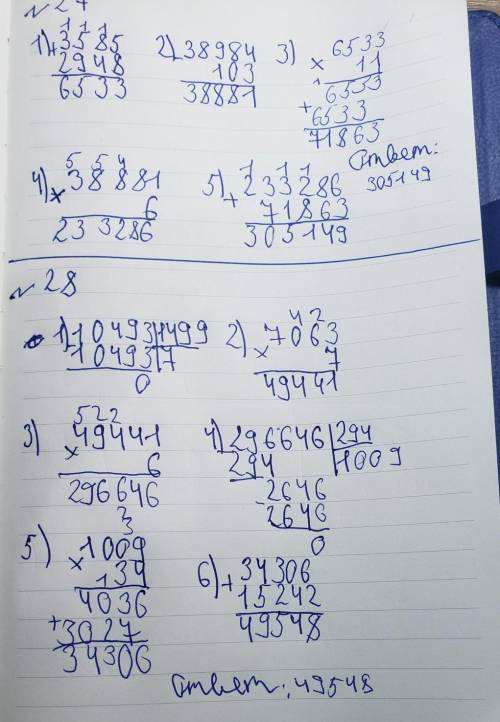 № 27
1 1 1
1) + 3585
2948
6533
2) - 38984
103
38881
3) × 6533
11
6533
+ 6533
71863
Ответ:
305149
5 5 4
4) × 38881
6
233286
1 1 1
5) + 233286
71863
305149
№ 28
1) 10493 | 1499
10493 | 7
0
4 2
2) × 7063
7
49441
5 2 2
3) × 49441
6
296646
4) 296646 | 294
294 | 1009
- 2646
2646
0
2
3
5) × 1009
134
4036
+ 3027
34306
6) + 34306
15242
49548
Ответ: 49548